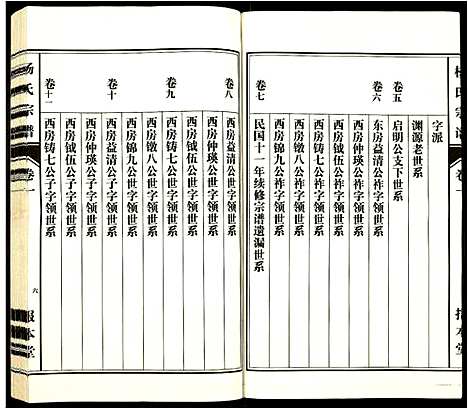 字派
渊源老世系
卷五
启明公支下世系
卷六
东房益清公祚字领世系
西房仲瑛公祚字领世系
西房钺伍公祚字领世系
西房铸七公祚字领世系
西房镦八公祚字领世系
西房锦九公祚字领世系
卷七
民国十一年续修宗谱遗漏世系
卷八
西房益清公世字领世系
西房仲瑛公世字领世系
西房钺伍公世字领世系
卷九
西房铸七公世字领世系
西房镦八公世字领世系
西房锦九公世字领世系
卷十
西房益清公子字领世系
西房仲瑛公子字领世系
西房钺伍公子字领世系
卷十一
西房铸七公子字领世系
杨氏宗谱
卷一
六
报本堂